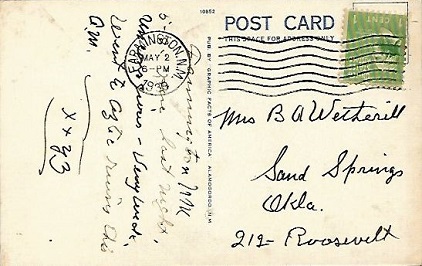 10852
POST CARD
THIS SPACE FOR ADDRESS ONLY
1 CENT 1
FARMINGTON, N.M.
MAY 2
6-PM
PUB. BY GRAPHIC FACTS OF AMERICA, ALAMOGORDO, N.M.
Mrs B A Wetherill
Sand Springs
Okla.
212- Roosevelt
Farmington N M
last night,
Went to Aztec ruins this
A.M.